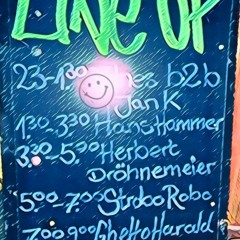 LINE UP
23-1.30 b2b
Jan K
1.30-3.30 Hans Hammer
3.30-5.30 Herbert
Dröhnemeier
5.00-7.00 Strobo Robo
7.00 9.00 Ghetto Harald